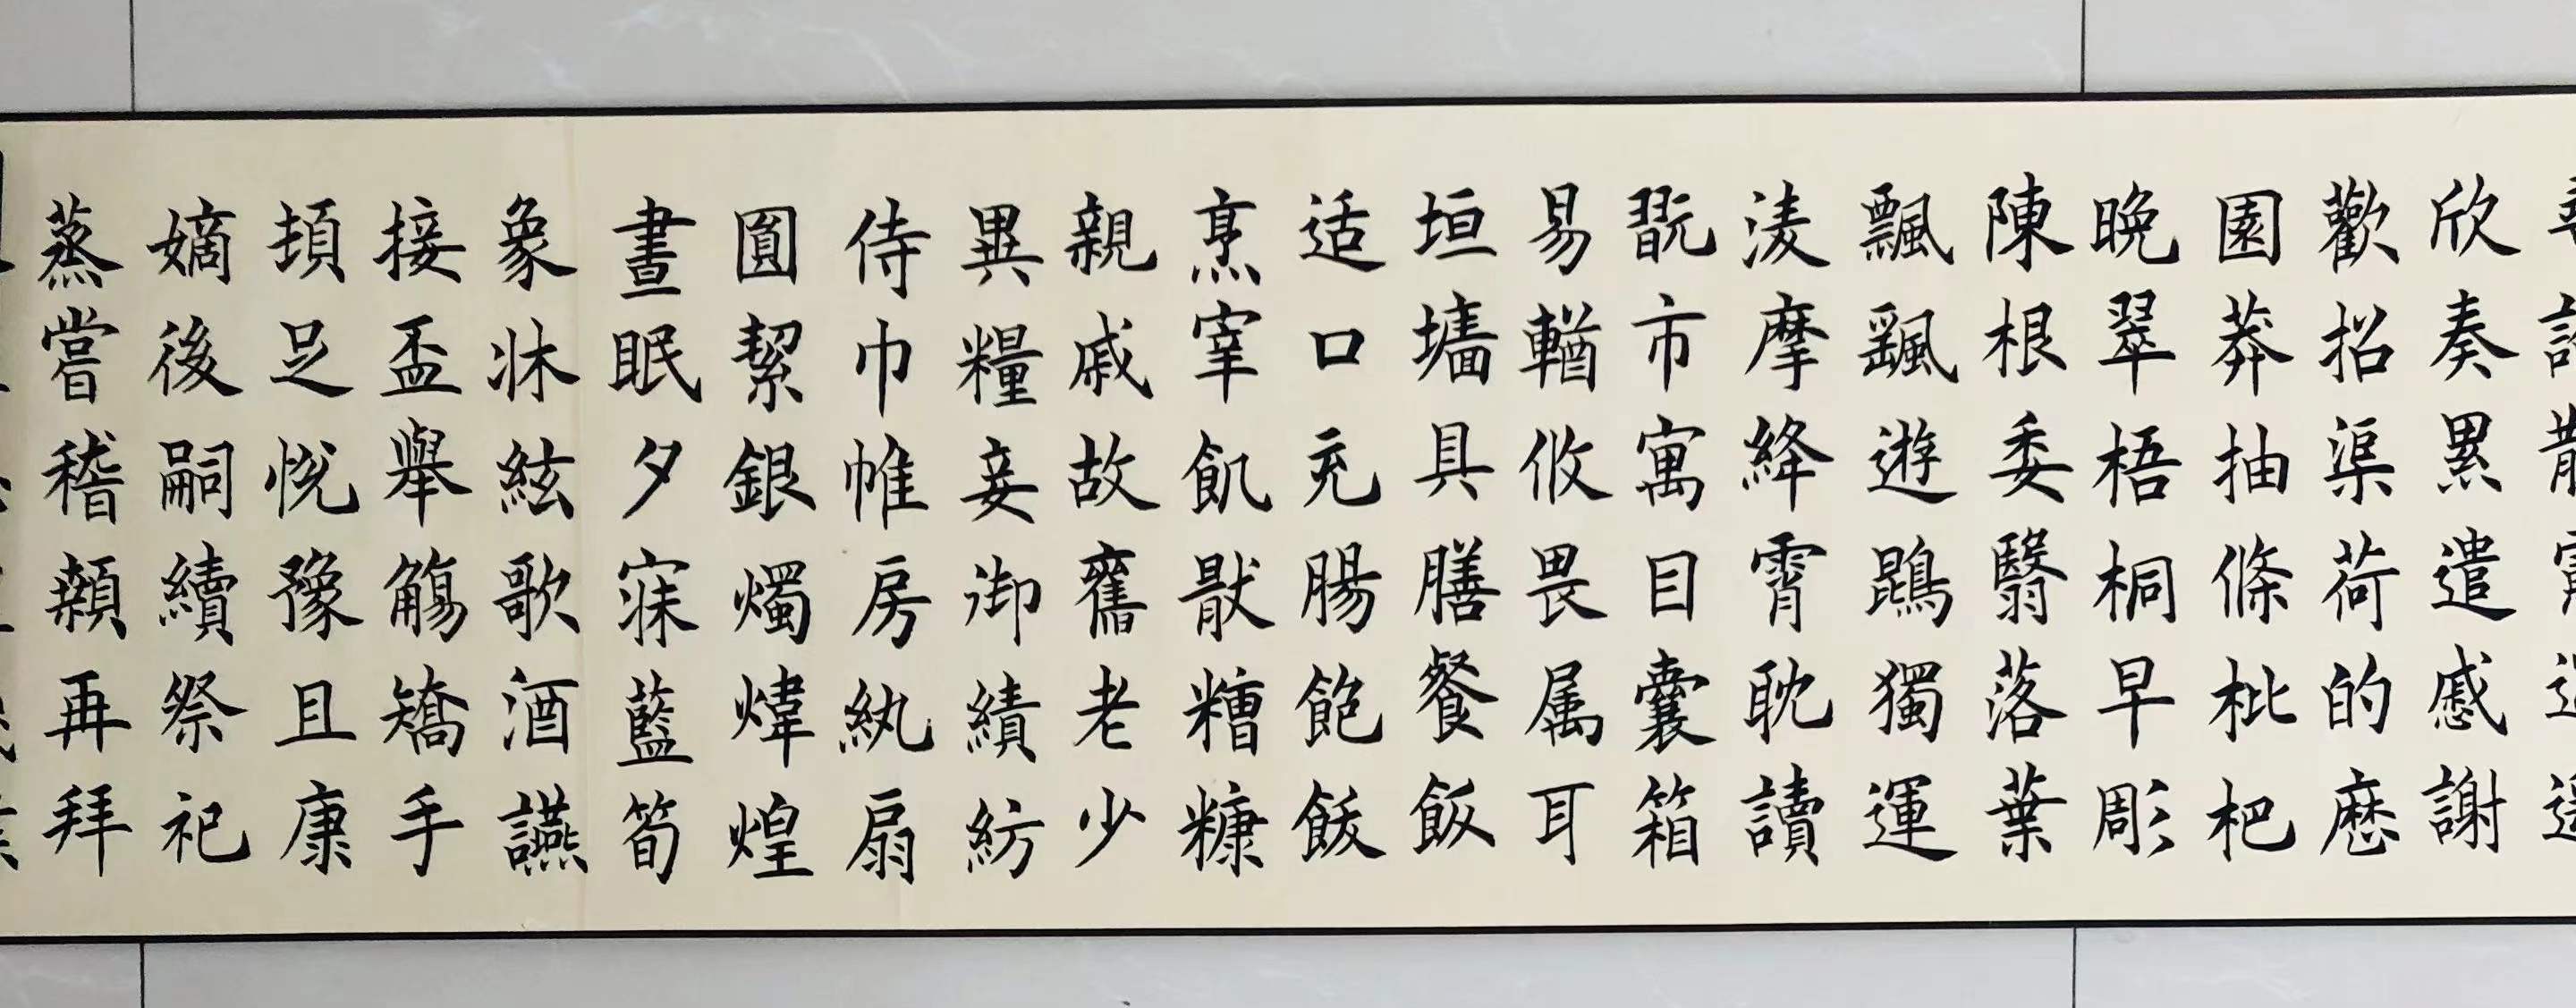 欣奏累遣慼謝
歡招渠荷的歷
園莽抽條枇杷
晚翠梧桐早彫
陳根委翳落葉
飄颻遊鵾獨運
淩摩絳霄耽讀
翫市寓目囊箱
易輶攸畏属耳
垣墻具膳餐飯
适口充腸飽飫
烹宰飢猒糟糠
親戚故舊老少
異糧妾御績紡
侍巾帷房紈扇
圓絜銀燭煒煌
晝眠夕寐藍筍
象牀絃歌酒讌
接盃舉觴矯手
頓足悅豫且康
嫡後嗣續祭祀
蒸嘗稽顙再拜